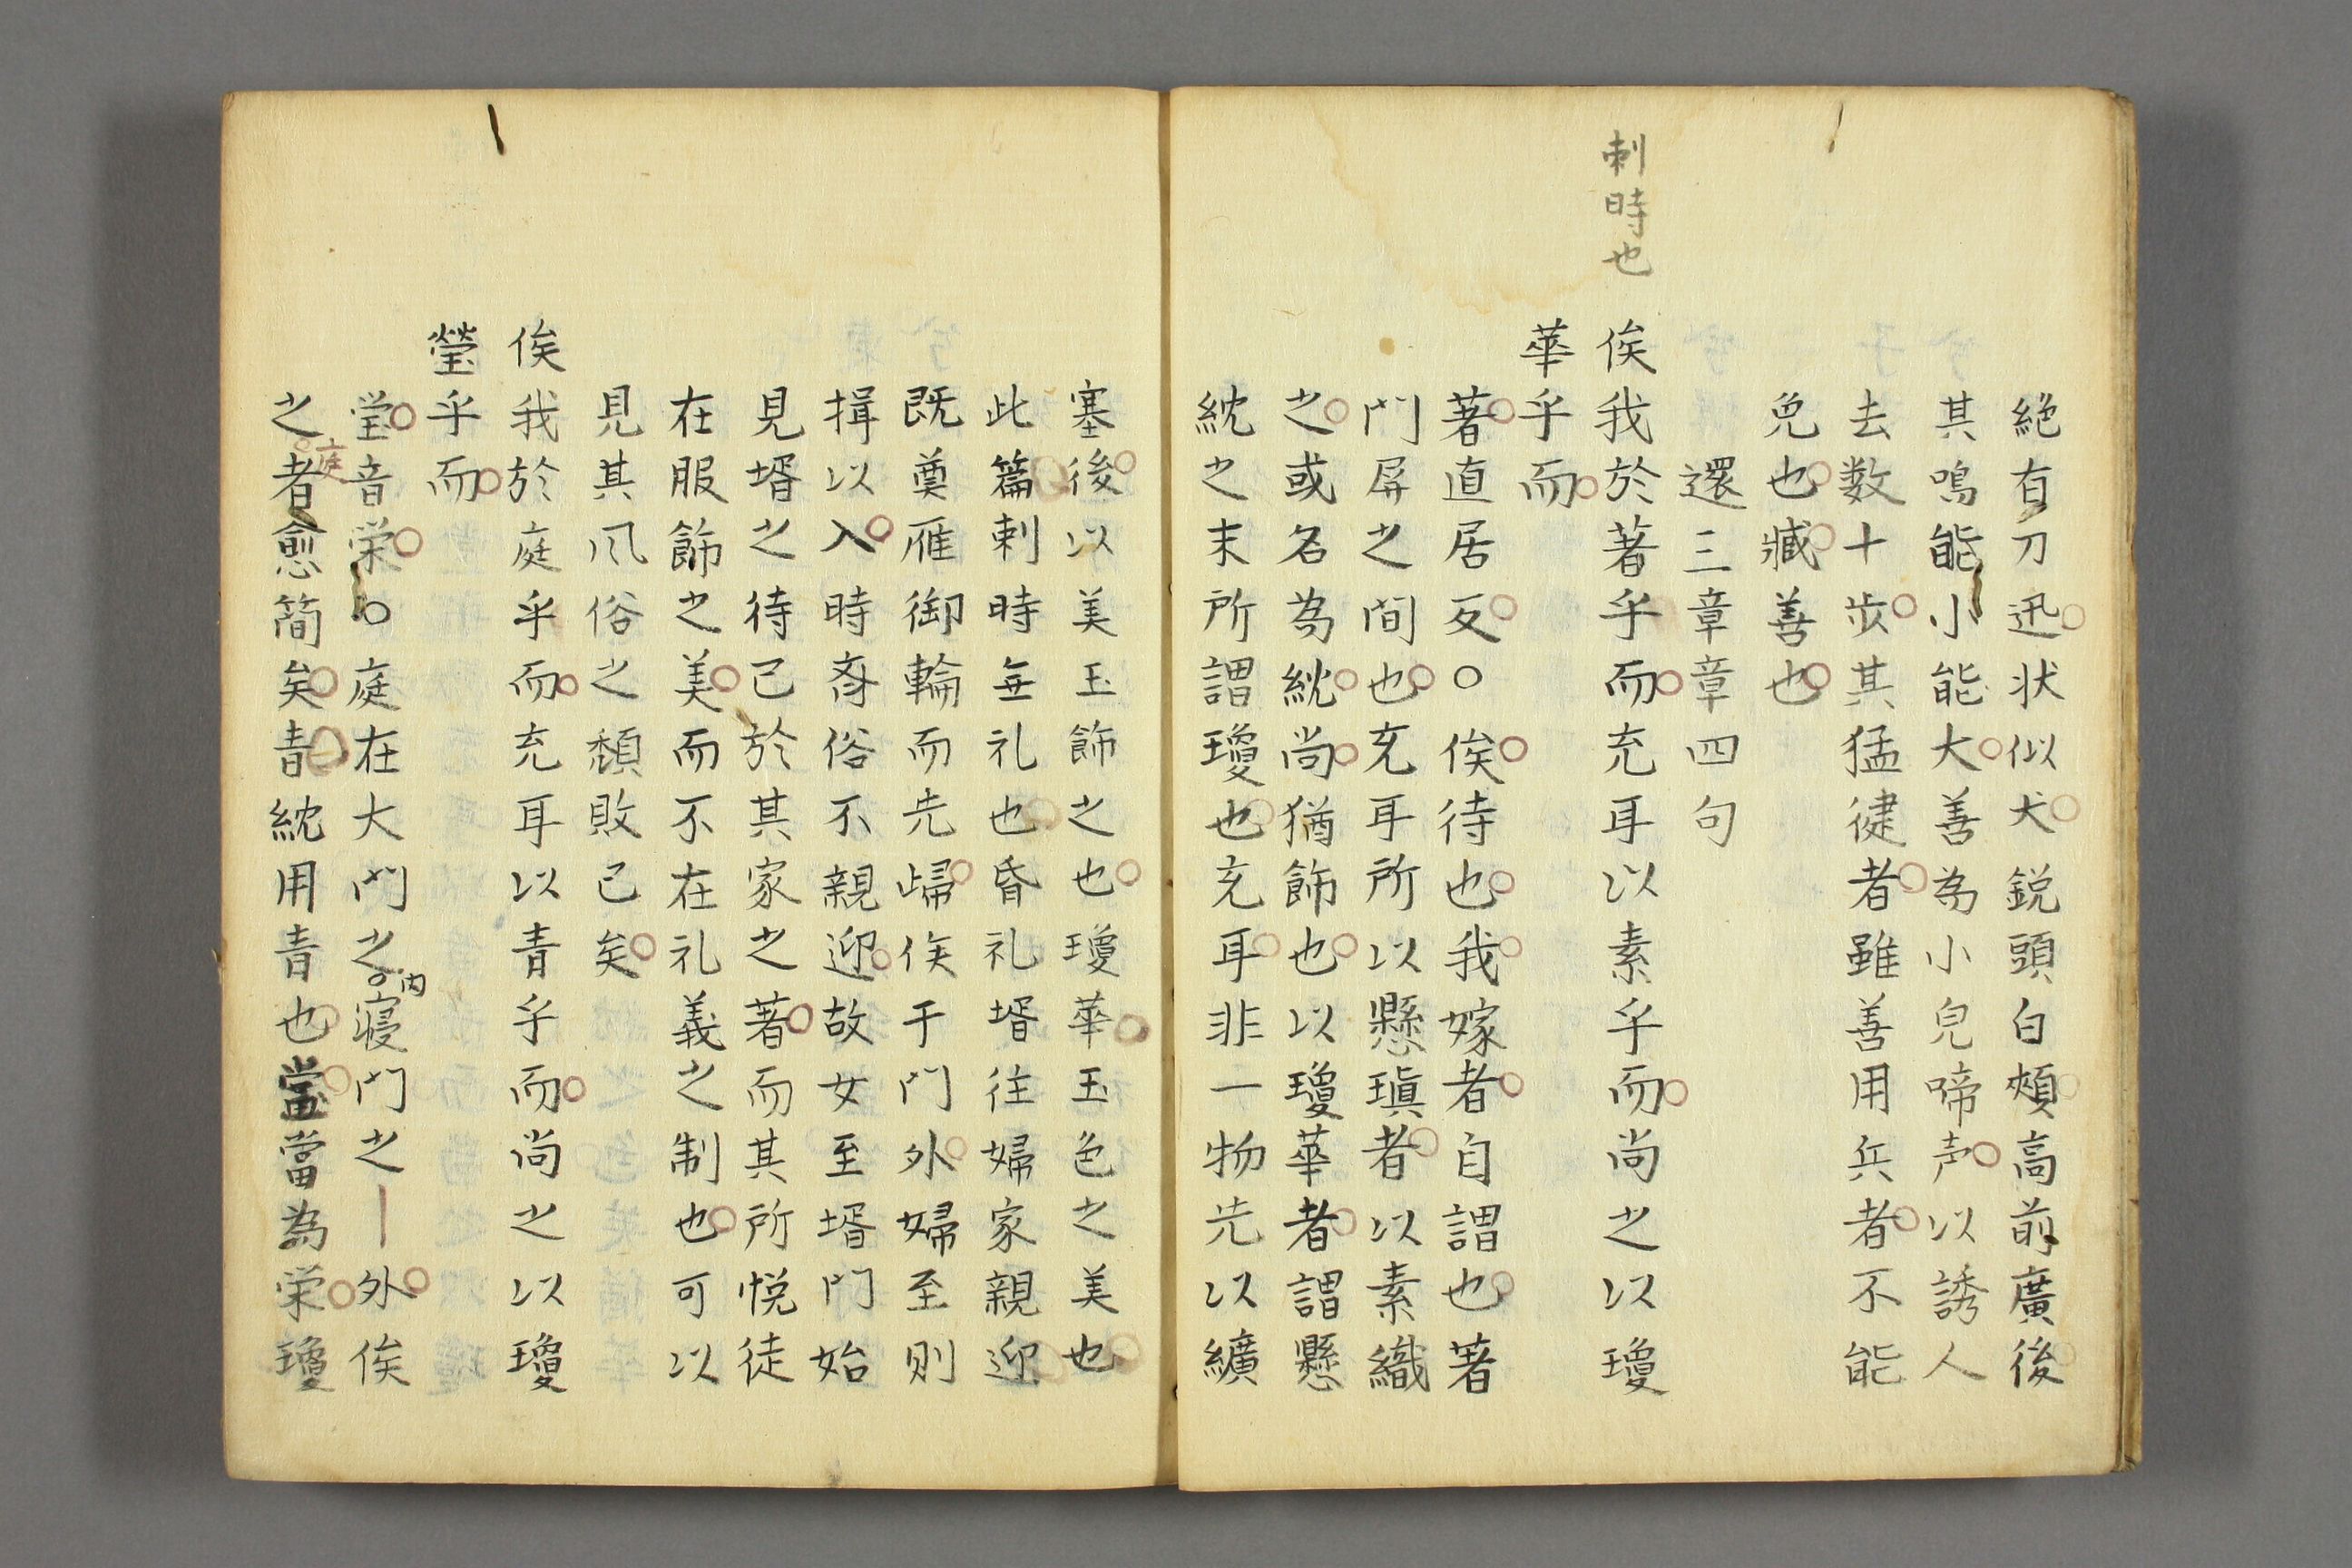 絶有力迅状似犬鋭頭白頰高前廣後
其鳴能小能大善為小兒啼声以誘人
去数十歩其猛健者雖善用兵者不能
免也臧善也
還三章章四句
刺時也
俟我於著乎而充耳以素乎而尚之以瓊
華乎而
著直居反○俟待也我嫁者自謂也著
門屏之間也充耳所以懸瑱者以素織
之或名為紞尚猶飾也以瓊華者謂懸
紞之末所謂瓊也充耳非一物先以纊
塞後以美玉飾之也瓊華玉色之美也
此篇刺時無礼也昏礼壻往婦家親迎
既奠雁御輪而先歸俟于門外婦至則
揖以入時斉俗不親迎故女至壻門始
見壻之待己於其家之著而其所悦徒
在服飾之美而不在礼義之制也可以
見其風俗之頽敗已矣
俟我於庭乎而充耳以青乎而尚之以瓊
瑩乎而
瑩音栄○庭在大門之内寝門之外俟
之庭者愈簡矣青紞用青也當當為栄瓊